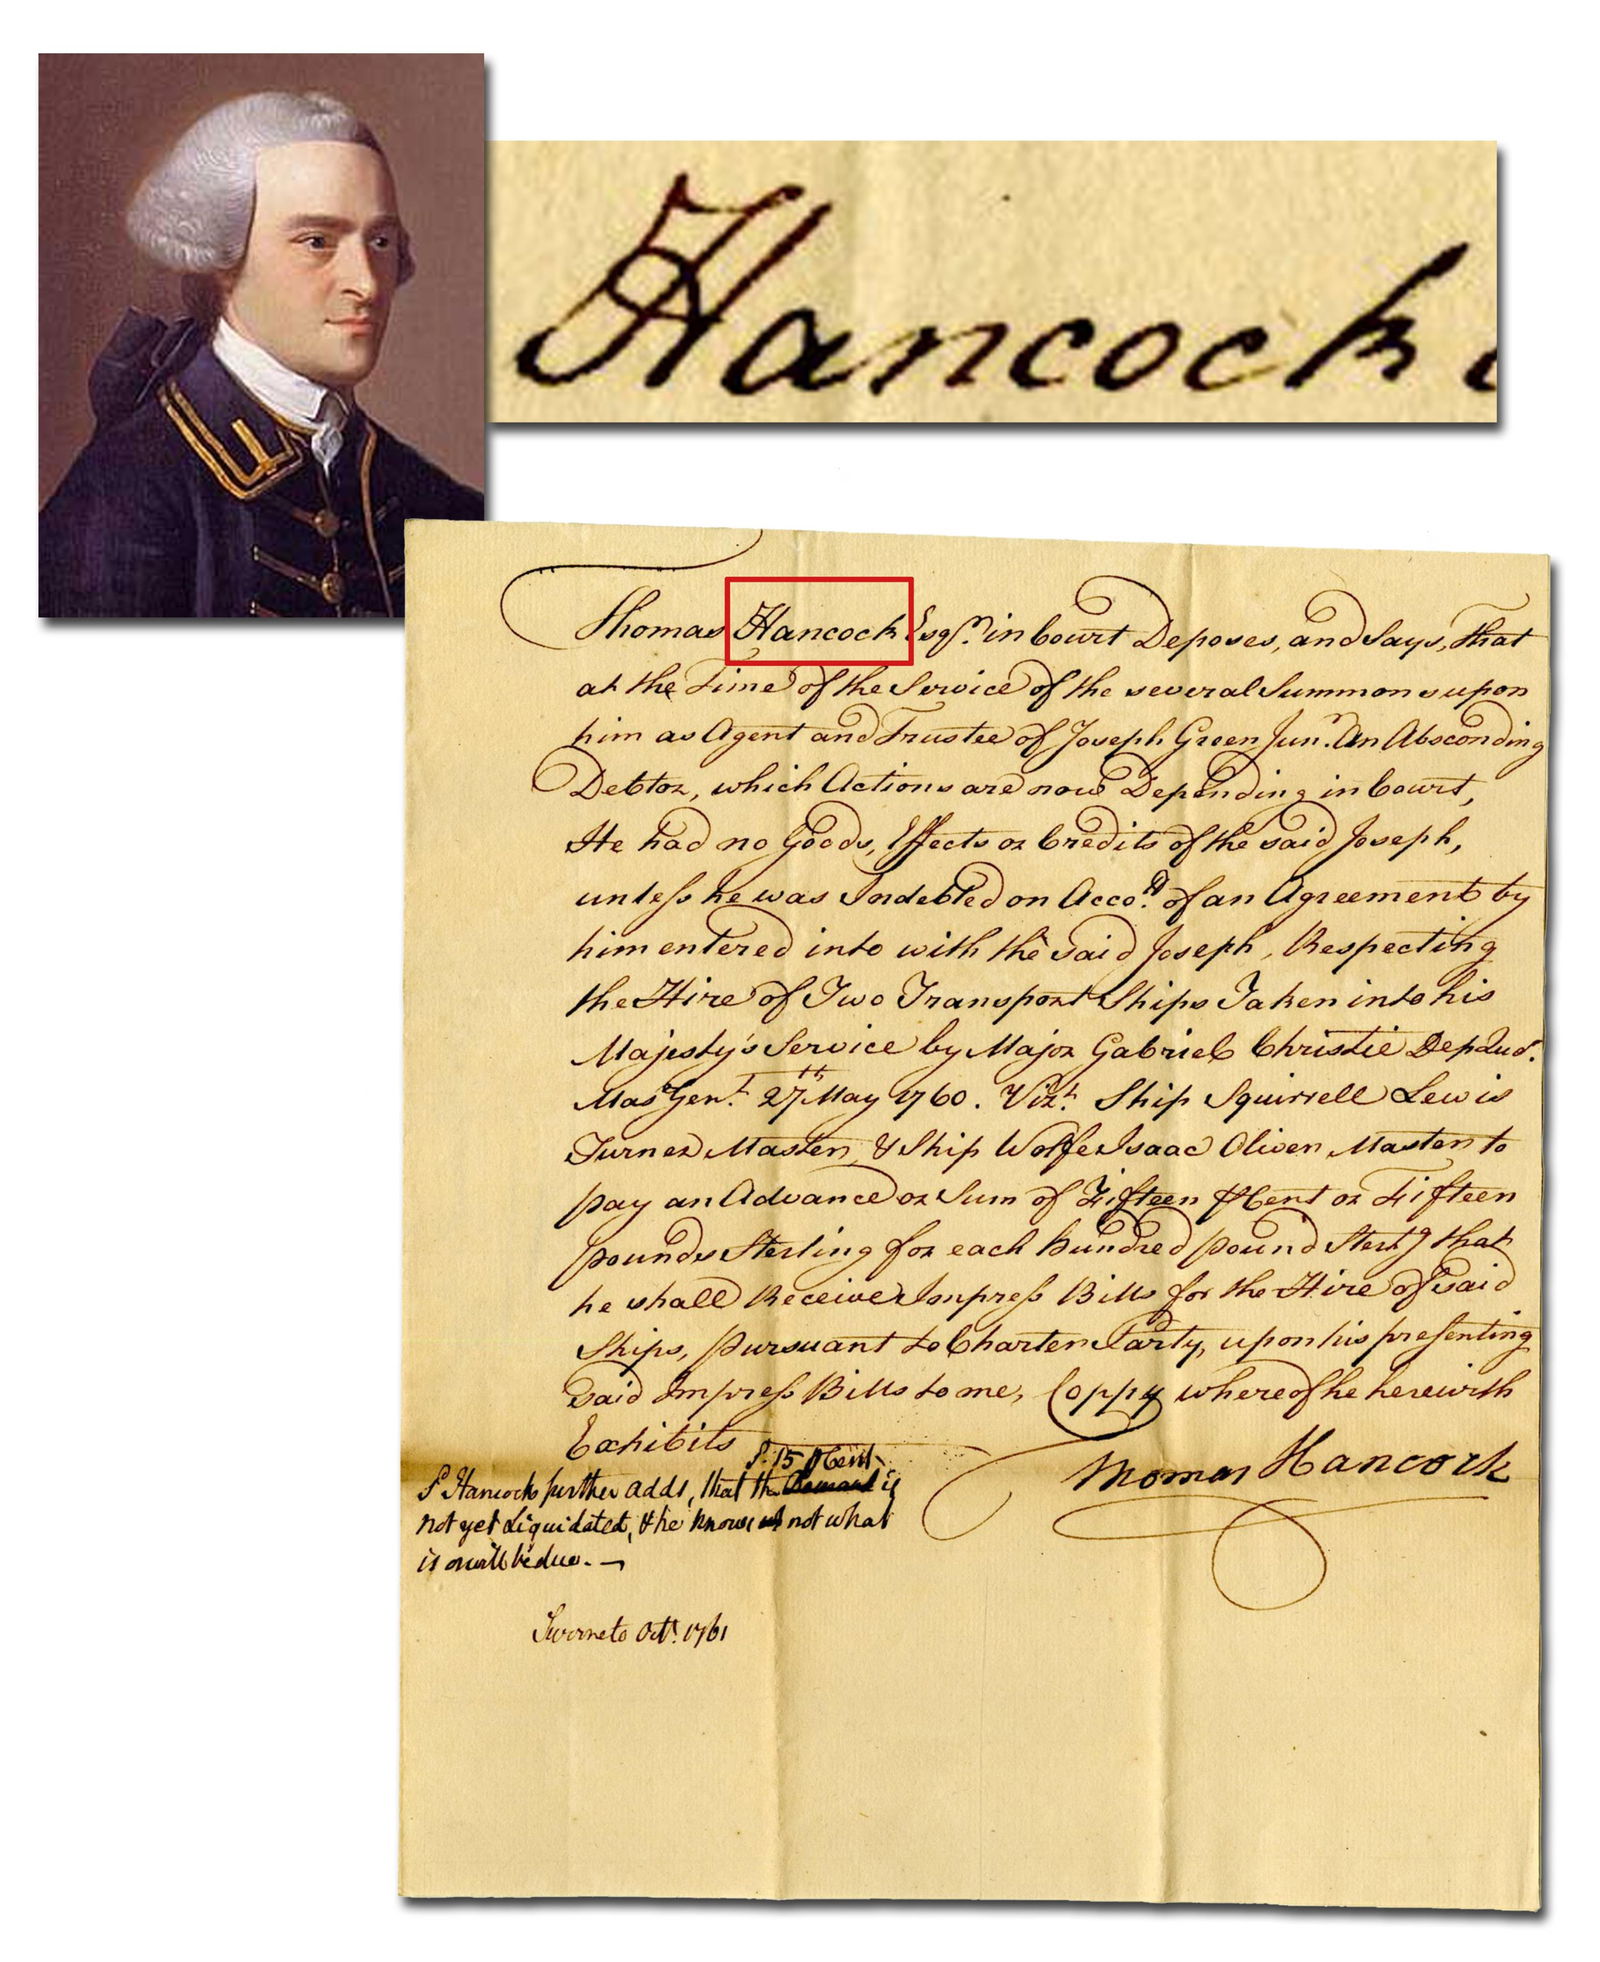 Hancock
Thomas Hancock Esqr. in Court Deposes, and Says, that
at the Time of the Service of the several Summons upon
him as Agent and Trustee of Joseph Green Junr. An Absconding
Debtor, which Actions are now Depending in Court,
He had no Goods, Effects or Credits of the said Joseph,
unless he was Indebted on Acco. of an Agreement by
him entered into with the said Joseph, Respecting
the Hire of Two Transport Ships Taken into his
Majesty's Service by Major Gabriel Christie Dep Qur.
Mas Genl. 27th May 1760. Vizt. Ship Squirrell Lewis
Turner Master, & Ship Wolfe Isaac Oliver Master to
pay an Advance or Sum of Fifteen ⅌ Cent or Fifteen
pounds Sterling for each hundred pound Sterlg that
he shall Receive Impress Bills for the Hire of Said
Ships, pursuant to Charter Party, upon his presenting
said Impress Bills to me, Coppy whereof he herewith
Exhibits
Thomas Hancock
sd. 15 ⅌ Cent
Sd Hancock further adds, that the is
not yet Liquidated, & he knows not what
is or will be due.
Sworn to Octr. 1761